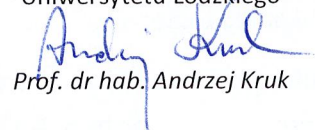 Uniwersytetu Łódzkiego
Andrzej Kruk
Prof. dr hab. Andrzej Kruk